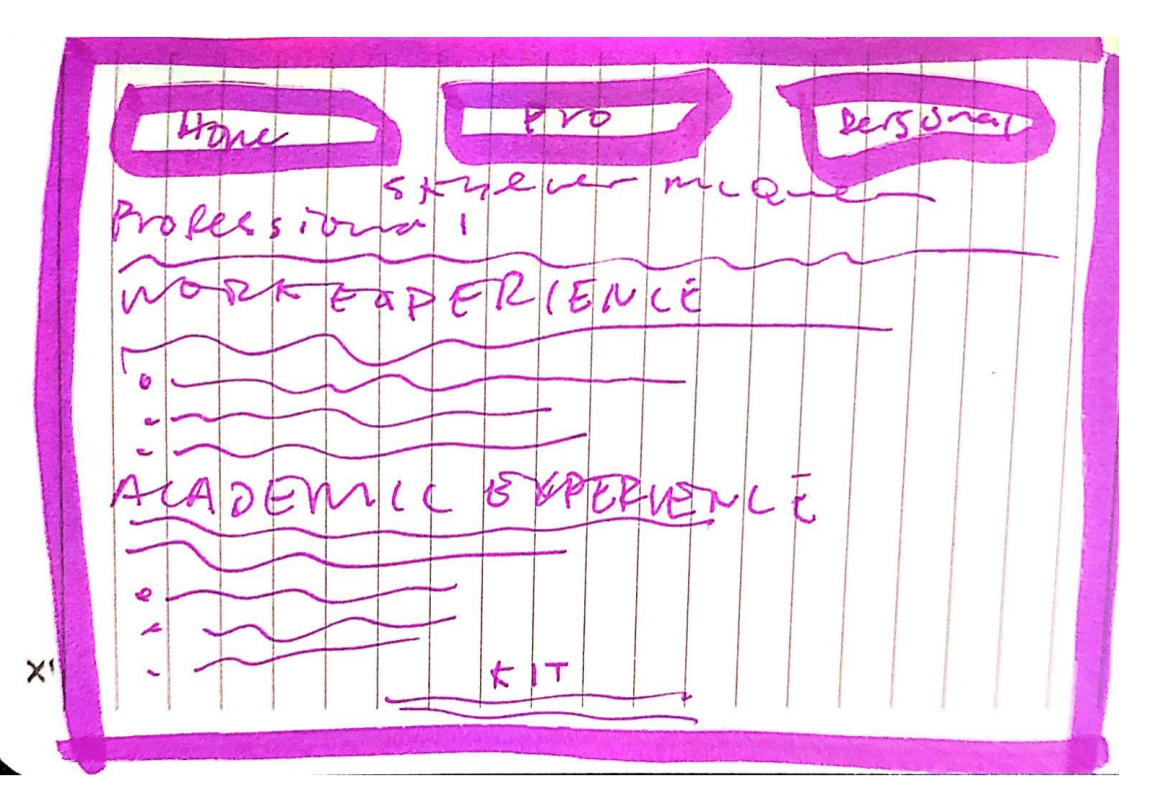 Home
Pro
Personal
Professional
WORK EXPERIENCE
ACADEMIC EXPERIENCE
KIT